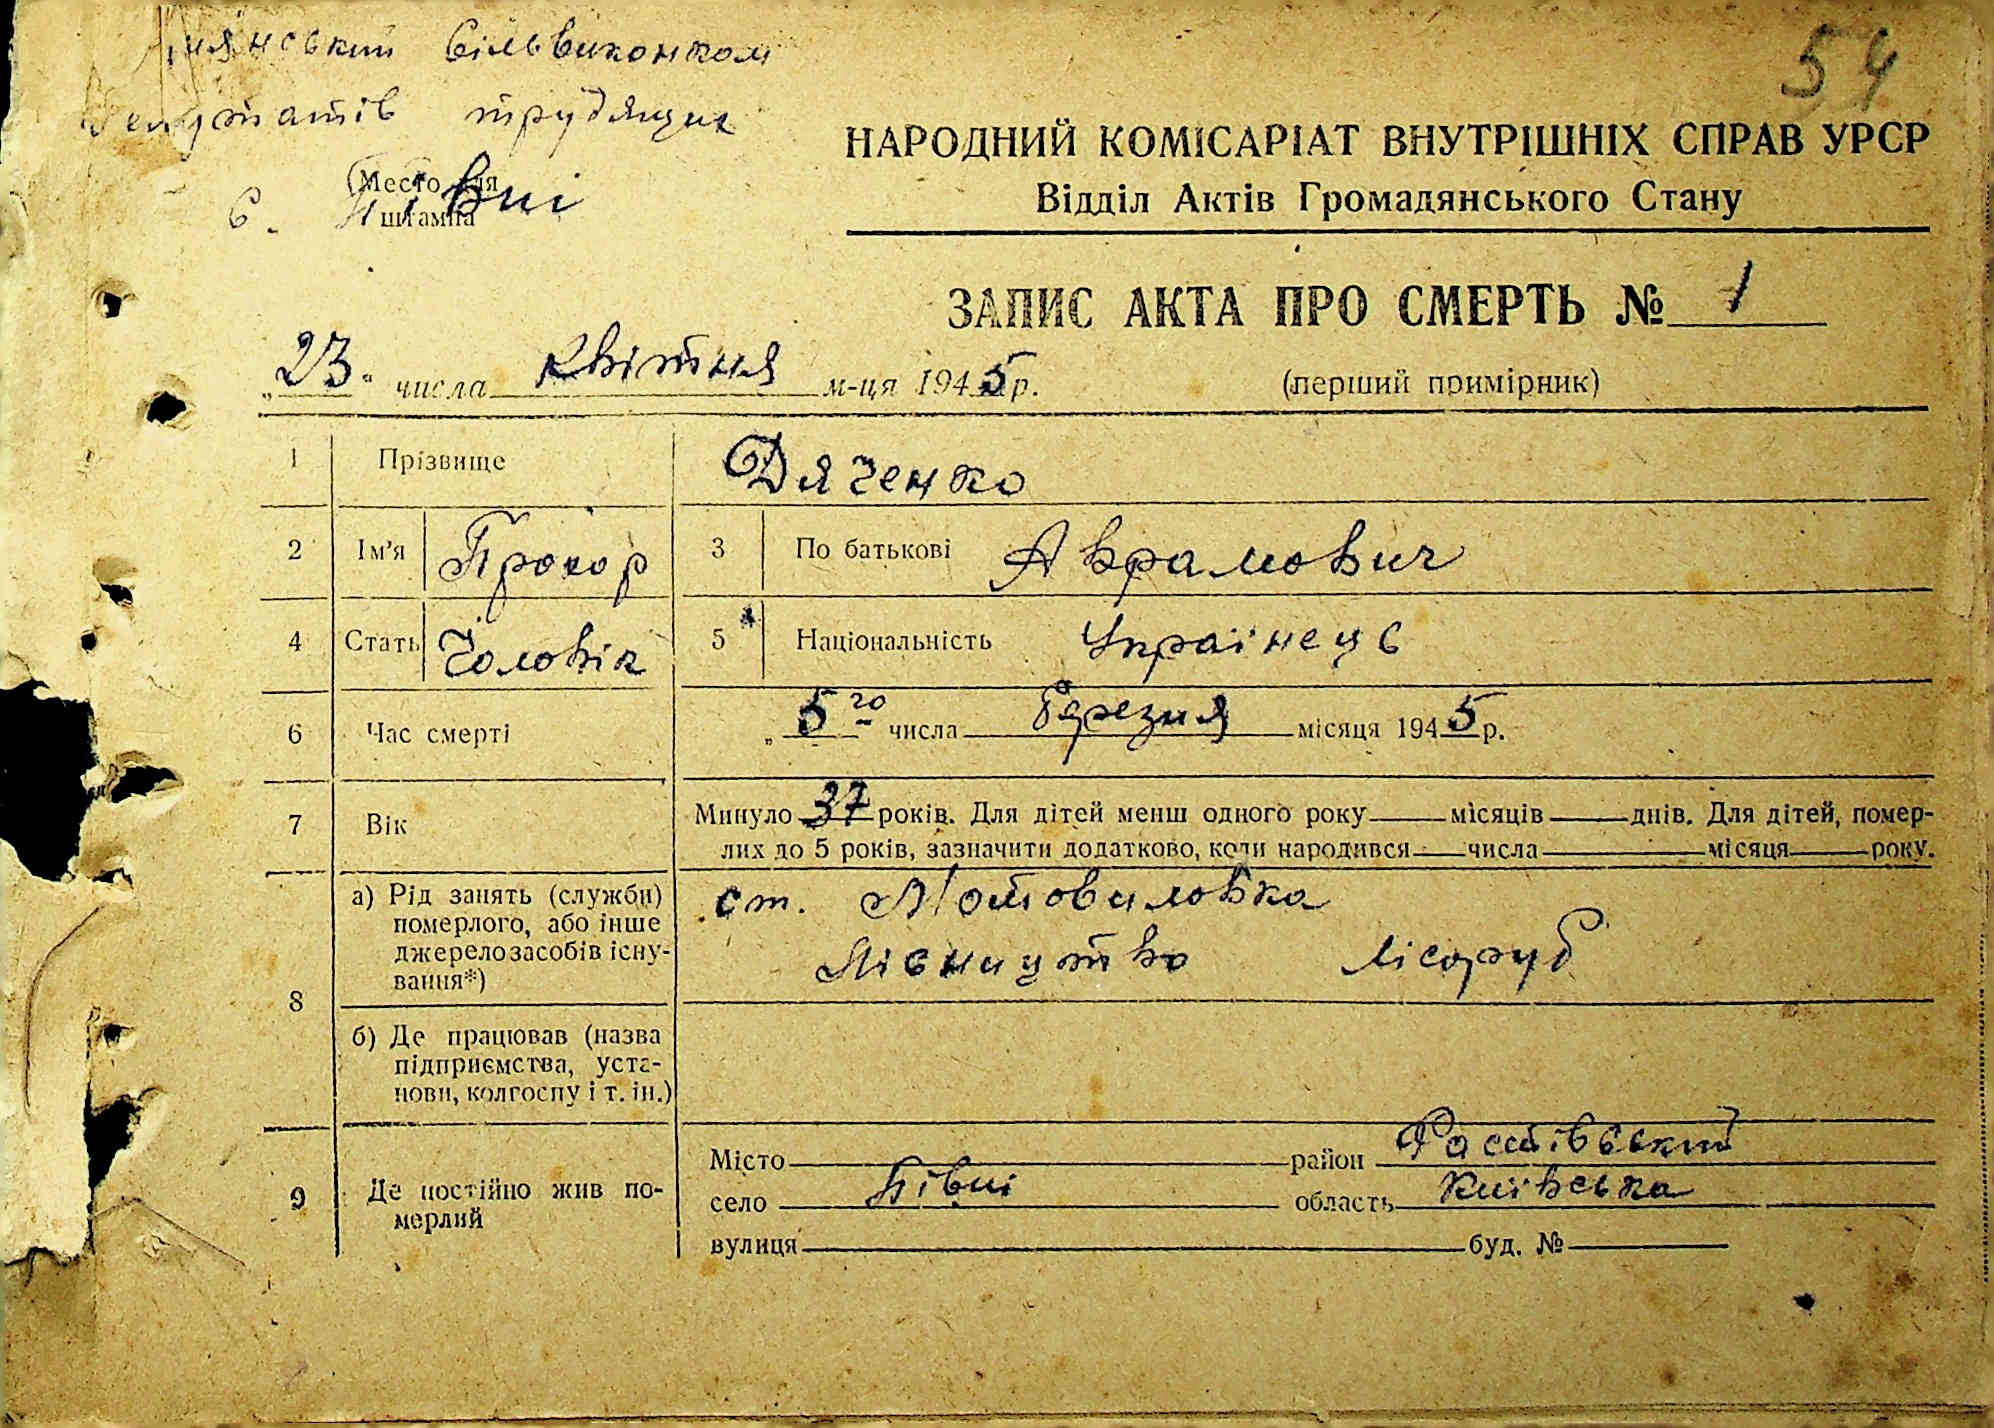 сільвиконком
депутатів трудящих
54
Место для
штампа
с. Півні
НАРОДНИЙ КОМІСАРІАТ ВНУТРІШНІХ СПРАВ УРСР
Відділ Актів Громадянського Стану
ЗАПИС АКТА ПРО СМЕРТЬ № 1
„23“ числа квітня м-ця 1945 р.
(перший примірник)
1 Прізвище Дяченко
2 Ім’я Прокор 3 По батькові Аврамович
4 Стать Чоловік 5 Національність Українець
6 Час смерті „5го числа березня місяця 1945 р.
7 Вік Минуло 37 років. Для дітей менш одного року місяців днів. Для дітей, помер-
лих до 5 років, зазначити додатково, коли народився числа місяця року.
8 а) Рід занять (служби)
померлого, або інше
джерело засобів існу-
вання*)
ст. Мотовиловка
Лісництво лісоруб
б) Де працював (назва
підприємства, уста-
нови, колгоспу і т. ін.)
9 Де постійно жив по-
мерлий
Місто район Фастівський
село Півні область Київська
вулиця буд. №